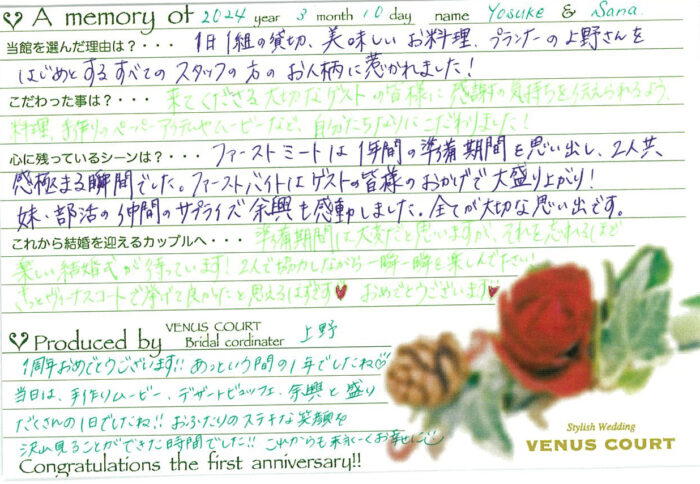 A memory of 2024 year 3 month 10 day name Yosuke & Sana
当館を選んだ理由は？・・・ 1日1組の貸切、美味しいお料理、プランナーの上野さんを
はじめとするすべてのスタッフの方のお人柄に惹かれました！
こだわった事は？・・・ 来てくださる大切なゲストの皆様に感謝の気持ちを伝えられるよう、
料理、手作りのペーパーアイテムやムービーなど、自分たちなりにこだわりました！
心に残っているシーンは？・・・ ファーストミートは1年間の準備期間を思い出し、2人共、
感極まる瞬間でした。ファーストバイトはゲストの皆様のおかげで大盛り上がり！
妹・部活の仲間のサプライズ余興も感動しました。全てが大切な思い出です。
これから結婚を迎えるカップルへ・・・ 準備期間は大変だと思いますが、それを忘れるほど
楽しい結婚式が待っています！2人で協力しながら一瞬一瞬を楽しんで下さい
きっとヴィーナスコートで挙げて良かったと思えるはずです♥ おめでとうございます♥
Produced by VENUS COURT Bridal cordinater 上野
1周年おめでとうございます!! あっという間の1年でしたね♡
当日は、手作りムービー、デザートビュッフェ、余興と盛り
だくさんの1日でしたね!! おふたりのステキな笑顔を
沢山見ることができた時間でした!! これからも末永ーくお幸せに
Congratulations the first anniversary!!
Stylish Wedding
VENUS COURT